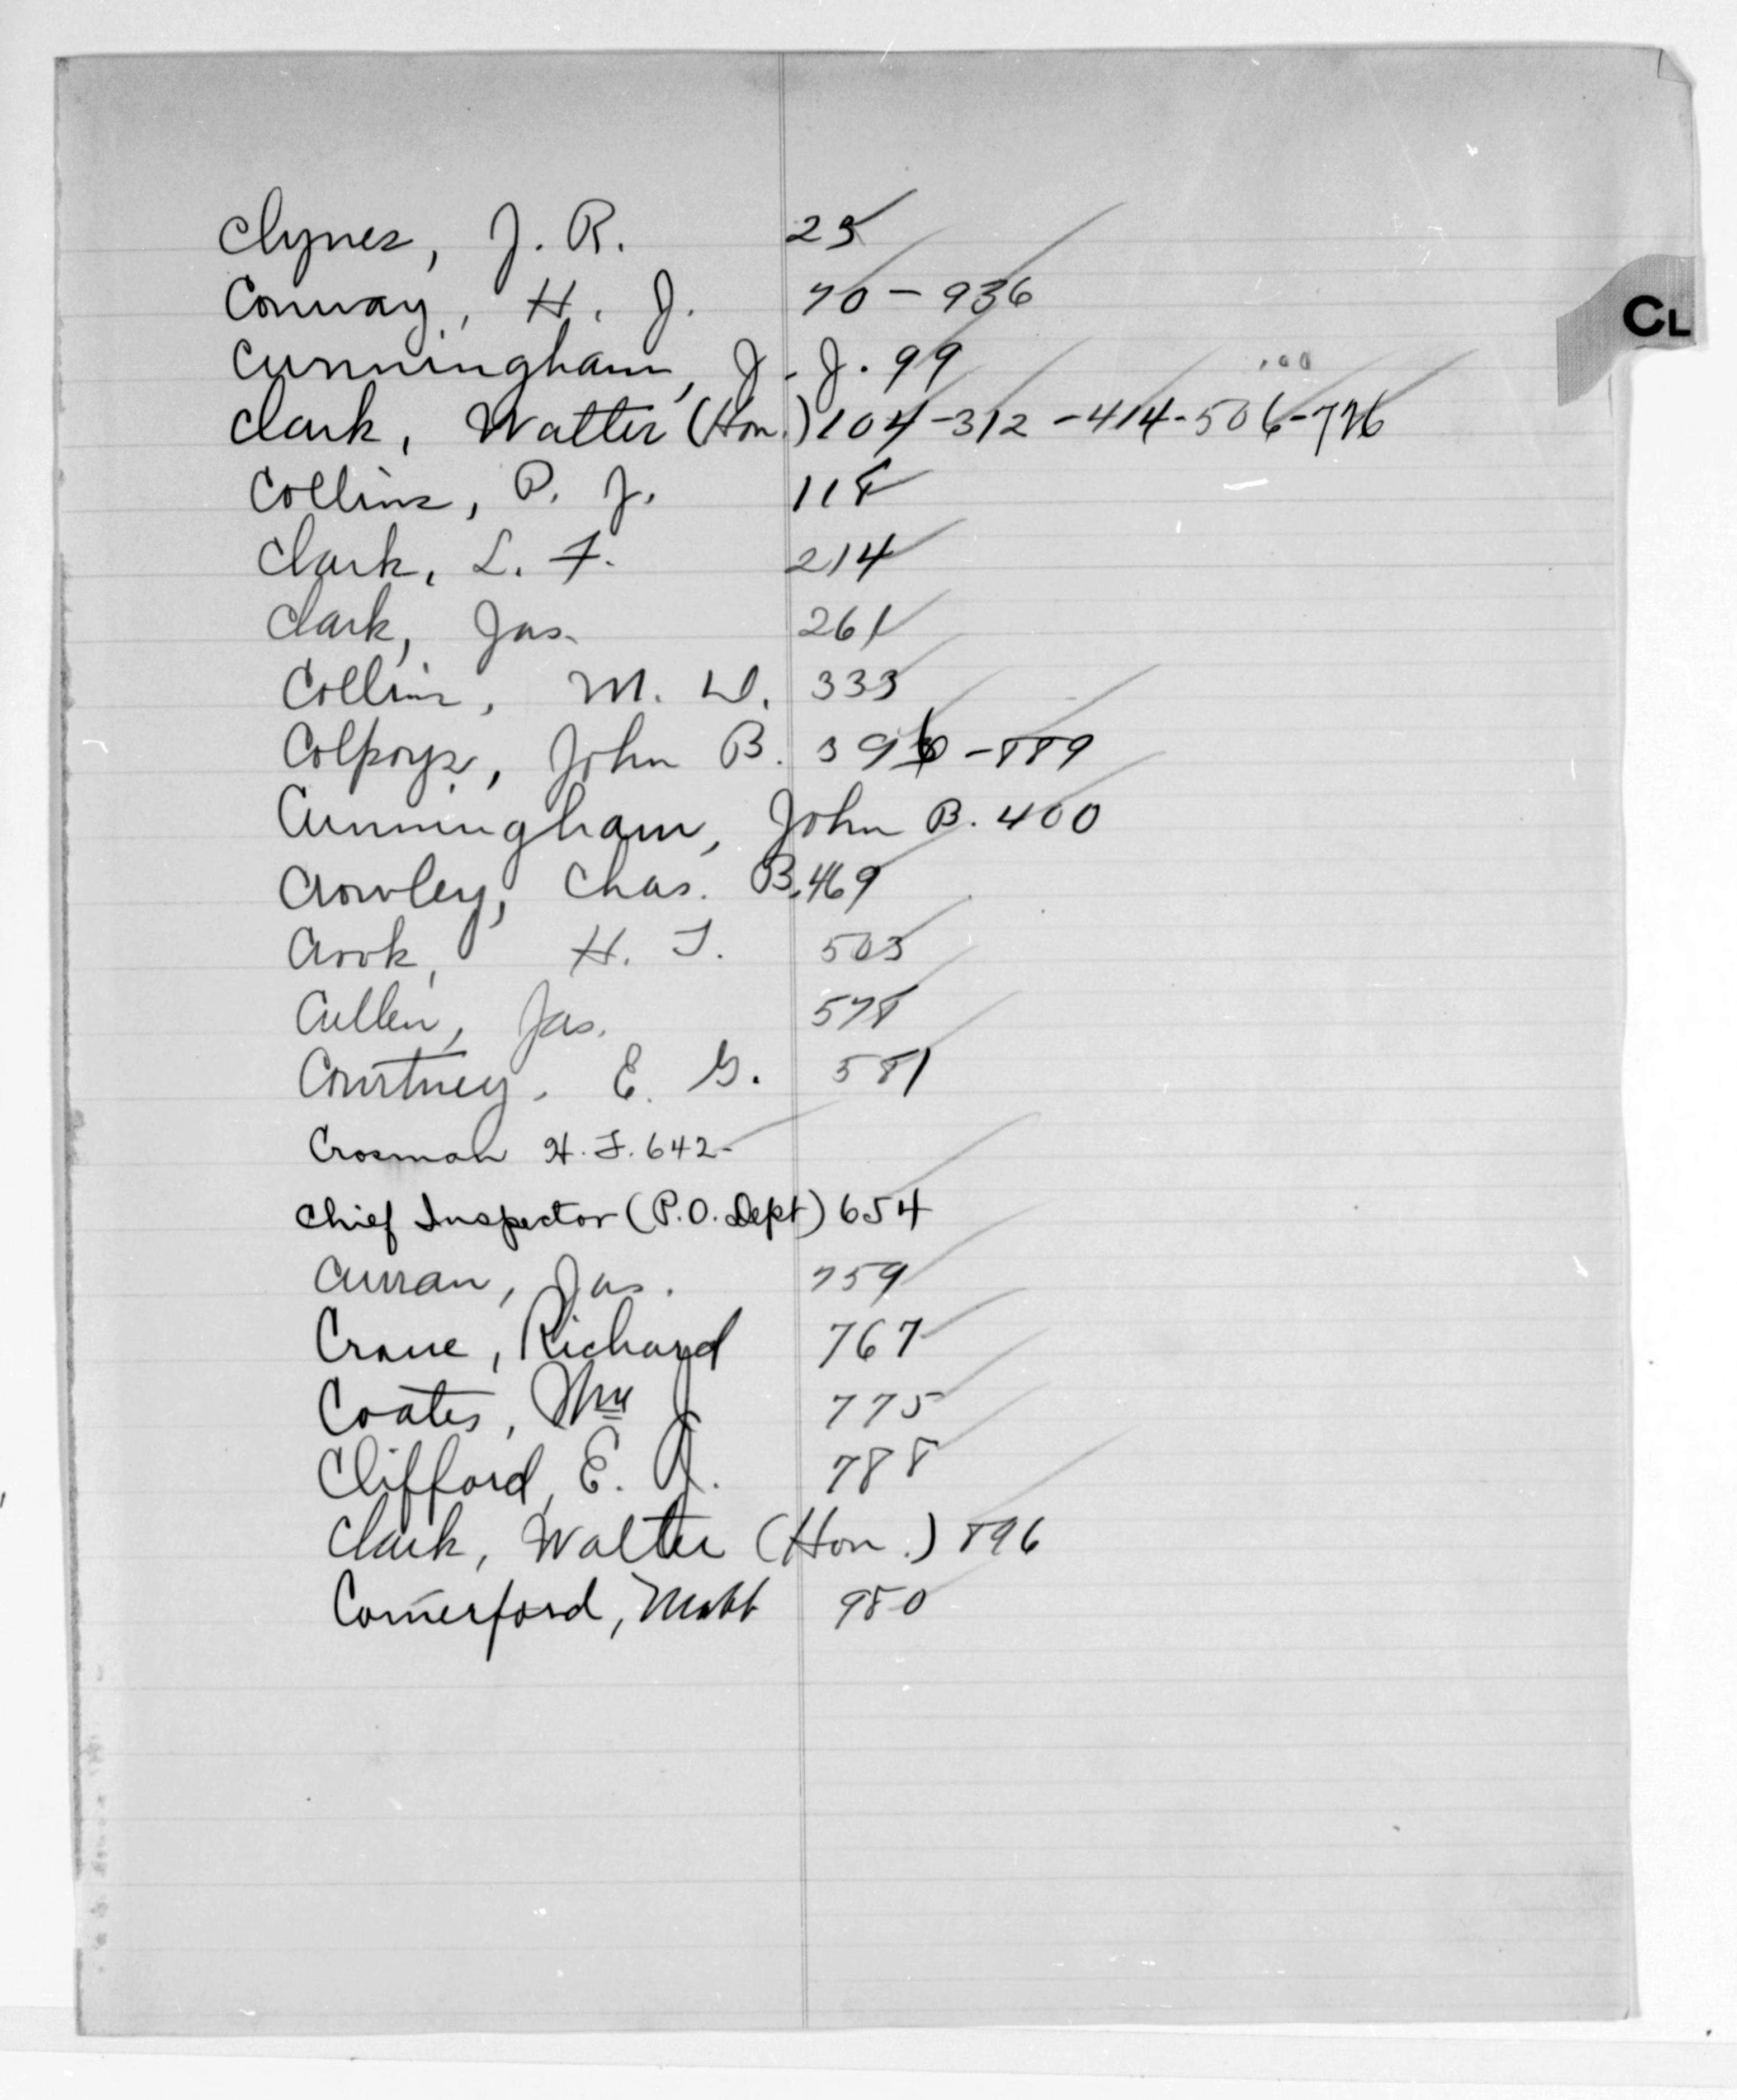 Clynes, J. R. 25
Conway, H. J. 70 - 936
CL
Cunningham, J. J. 99
Clark, Walter (Hon.) 104-312-414-506-776
Collins, P. J. 118
Clark, L. F. 214
Clark, Jas. 261
Collins, M. W. 333
Colpoys, John B. 396-889
Cunningham, John B. 400
Crowley, Chas. B. 469
Crook, H. T. 503
Cullen, Jas. 578
Courtney, E. G. 581
Crosman H. F. 642-
Chief Inspector (P.O. Dept) 654
Curran, Jas. 759
Crane, Richard 767
Coates, Mrs J 775
Clifford, E. J. 788
Clark, Walter (Hon.) 896
Comerford, Matt 980